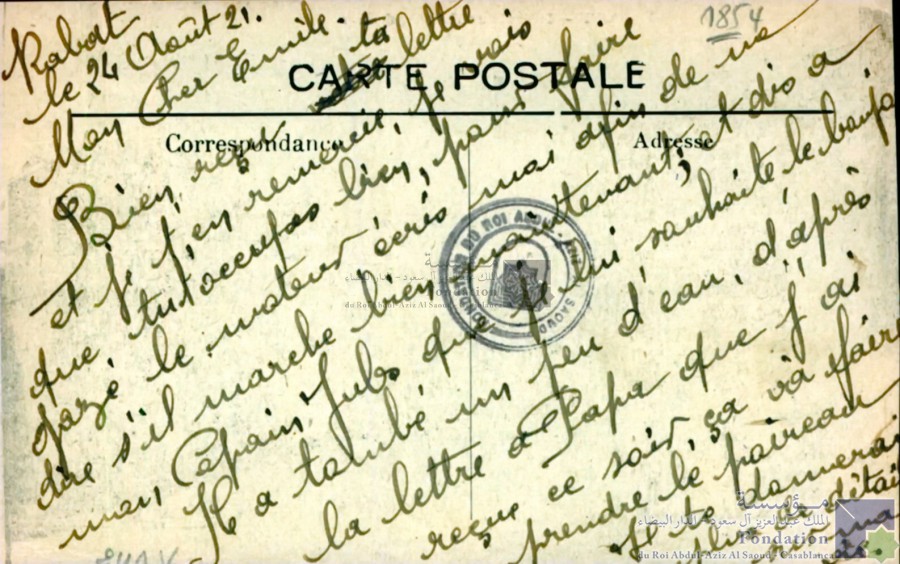 1854
Rabat
le 24 Août 21.
Mon Cher Emile.
CARTE POSTALE
Correspondance
Adresse
Bien reçu ta lettre
et je t'en remercie, je vois
que, tu t'occupes bien, pour faire
gazé le moteur écris moi afin de me
dire s'il marche bien maintenant, et dis a
mon Copain Jules que je lui souhaite le bonjo
Il a tombé un peu d'eau, d'après
la lettre a Papa que j'ai
reçue ce soir, ça va faire
prendre le
et te
plus de détai
مؤسسة
الملك عبد العزيز آل سعود - الدار البيضاء
Fondation
du Roi Abdul-Aziz Al Saoud - Casablanca
مؤسسة
الملك عبد العزيز آل سعود - الدار البيضاء
Fondation
du Roi Abdul-Aziz Al Saoud - Casablanca